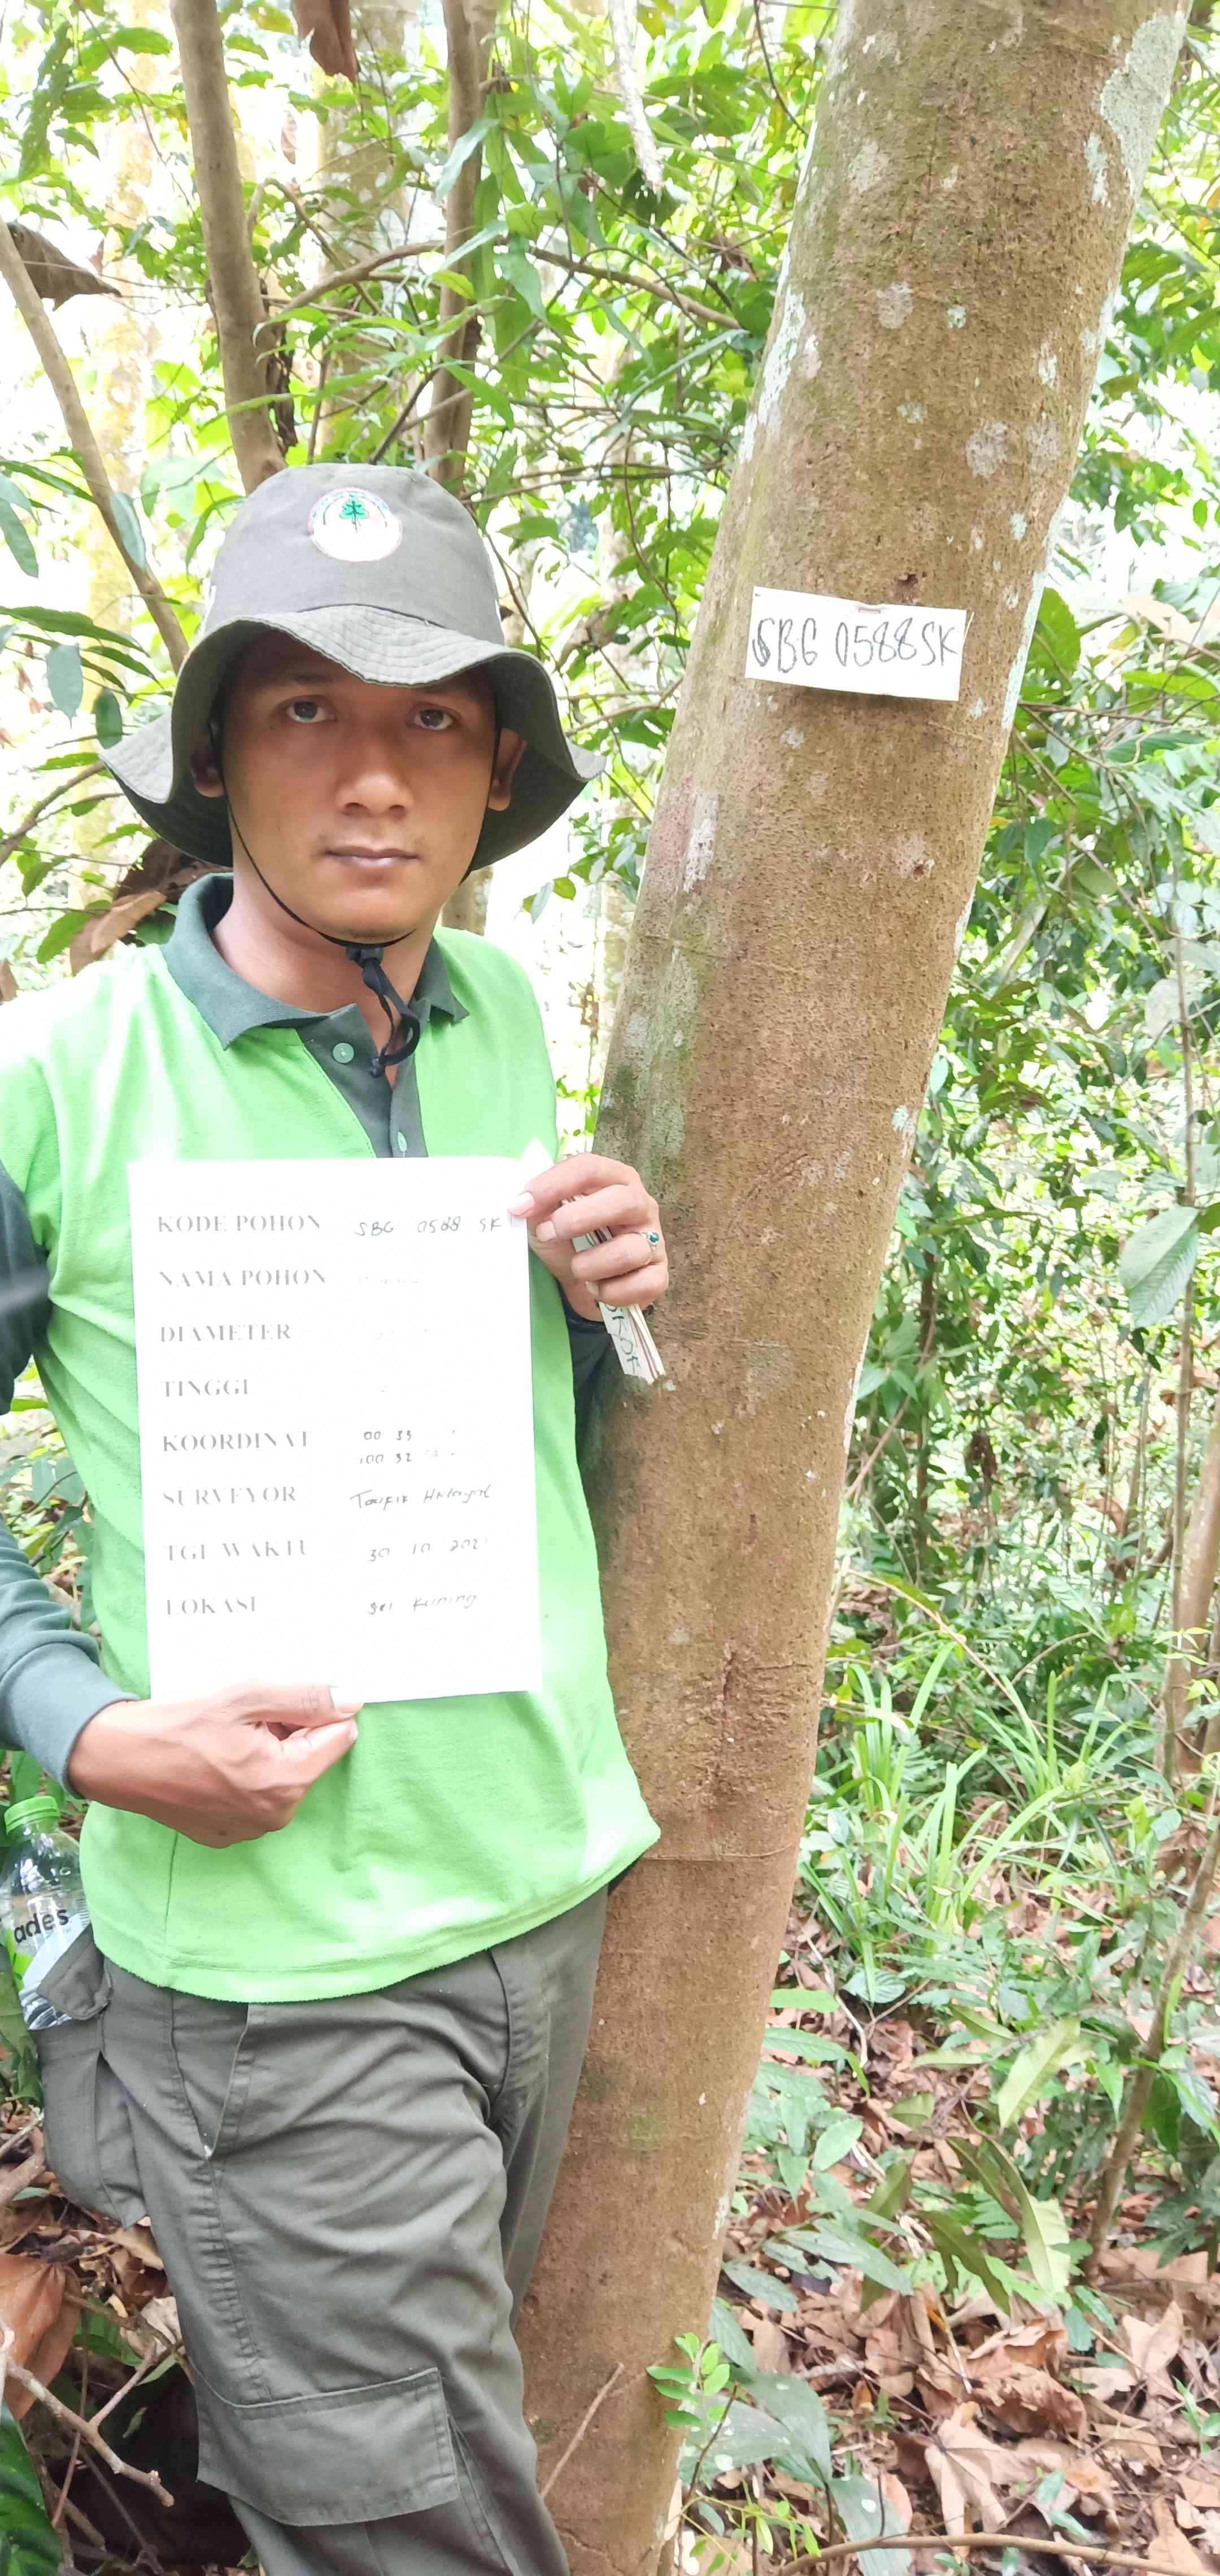 SBG 0588 SK
KODE POHON SBG 0588 SK
NAMA POHON
DIAMETER
TINGGI
KOORDINAT 00 33
100 32
SURVEYOR Taufik Hidayat
TGL WAKTU 30 10
LOKASI sei Kuning
ades